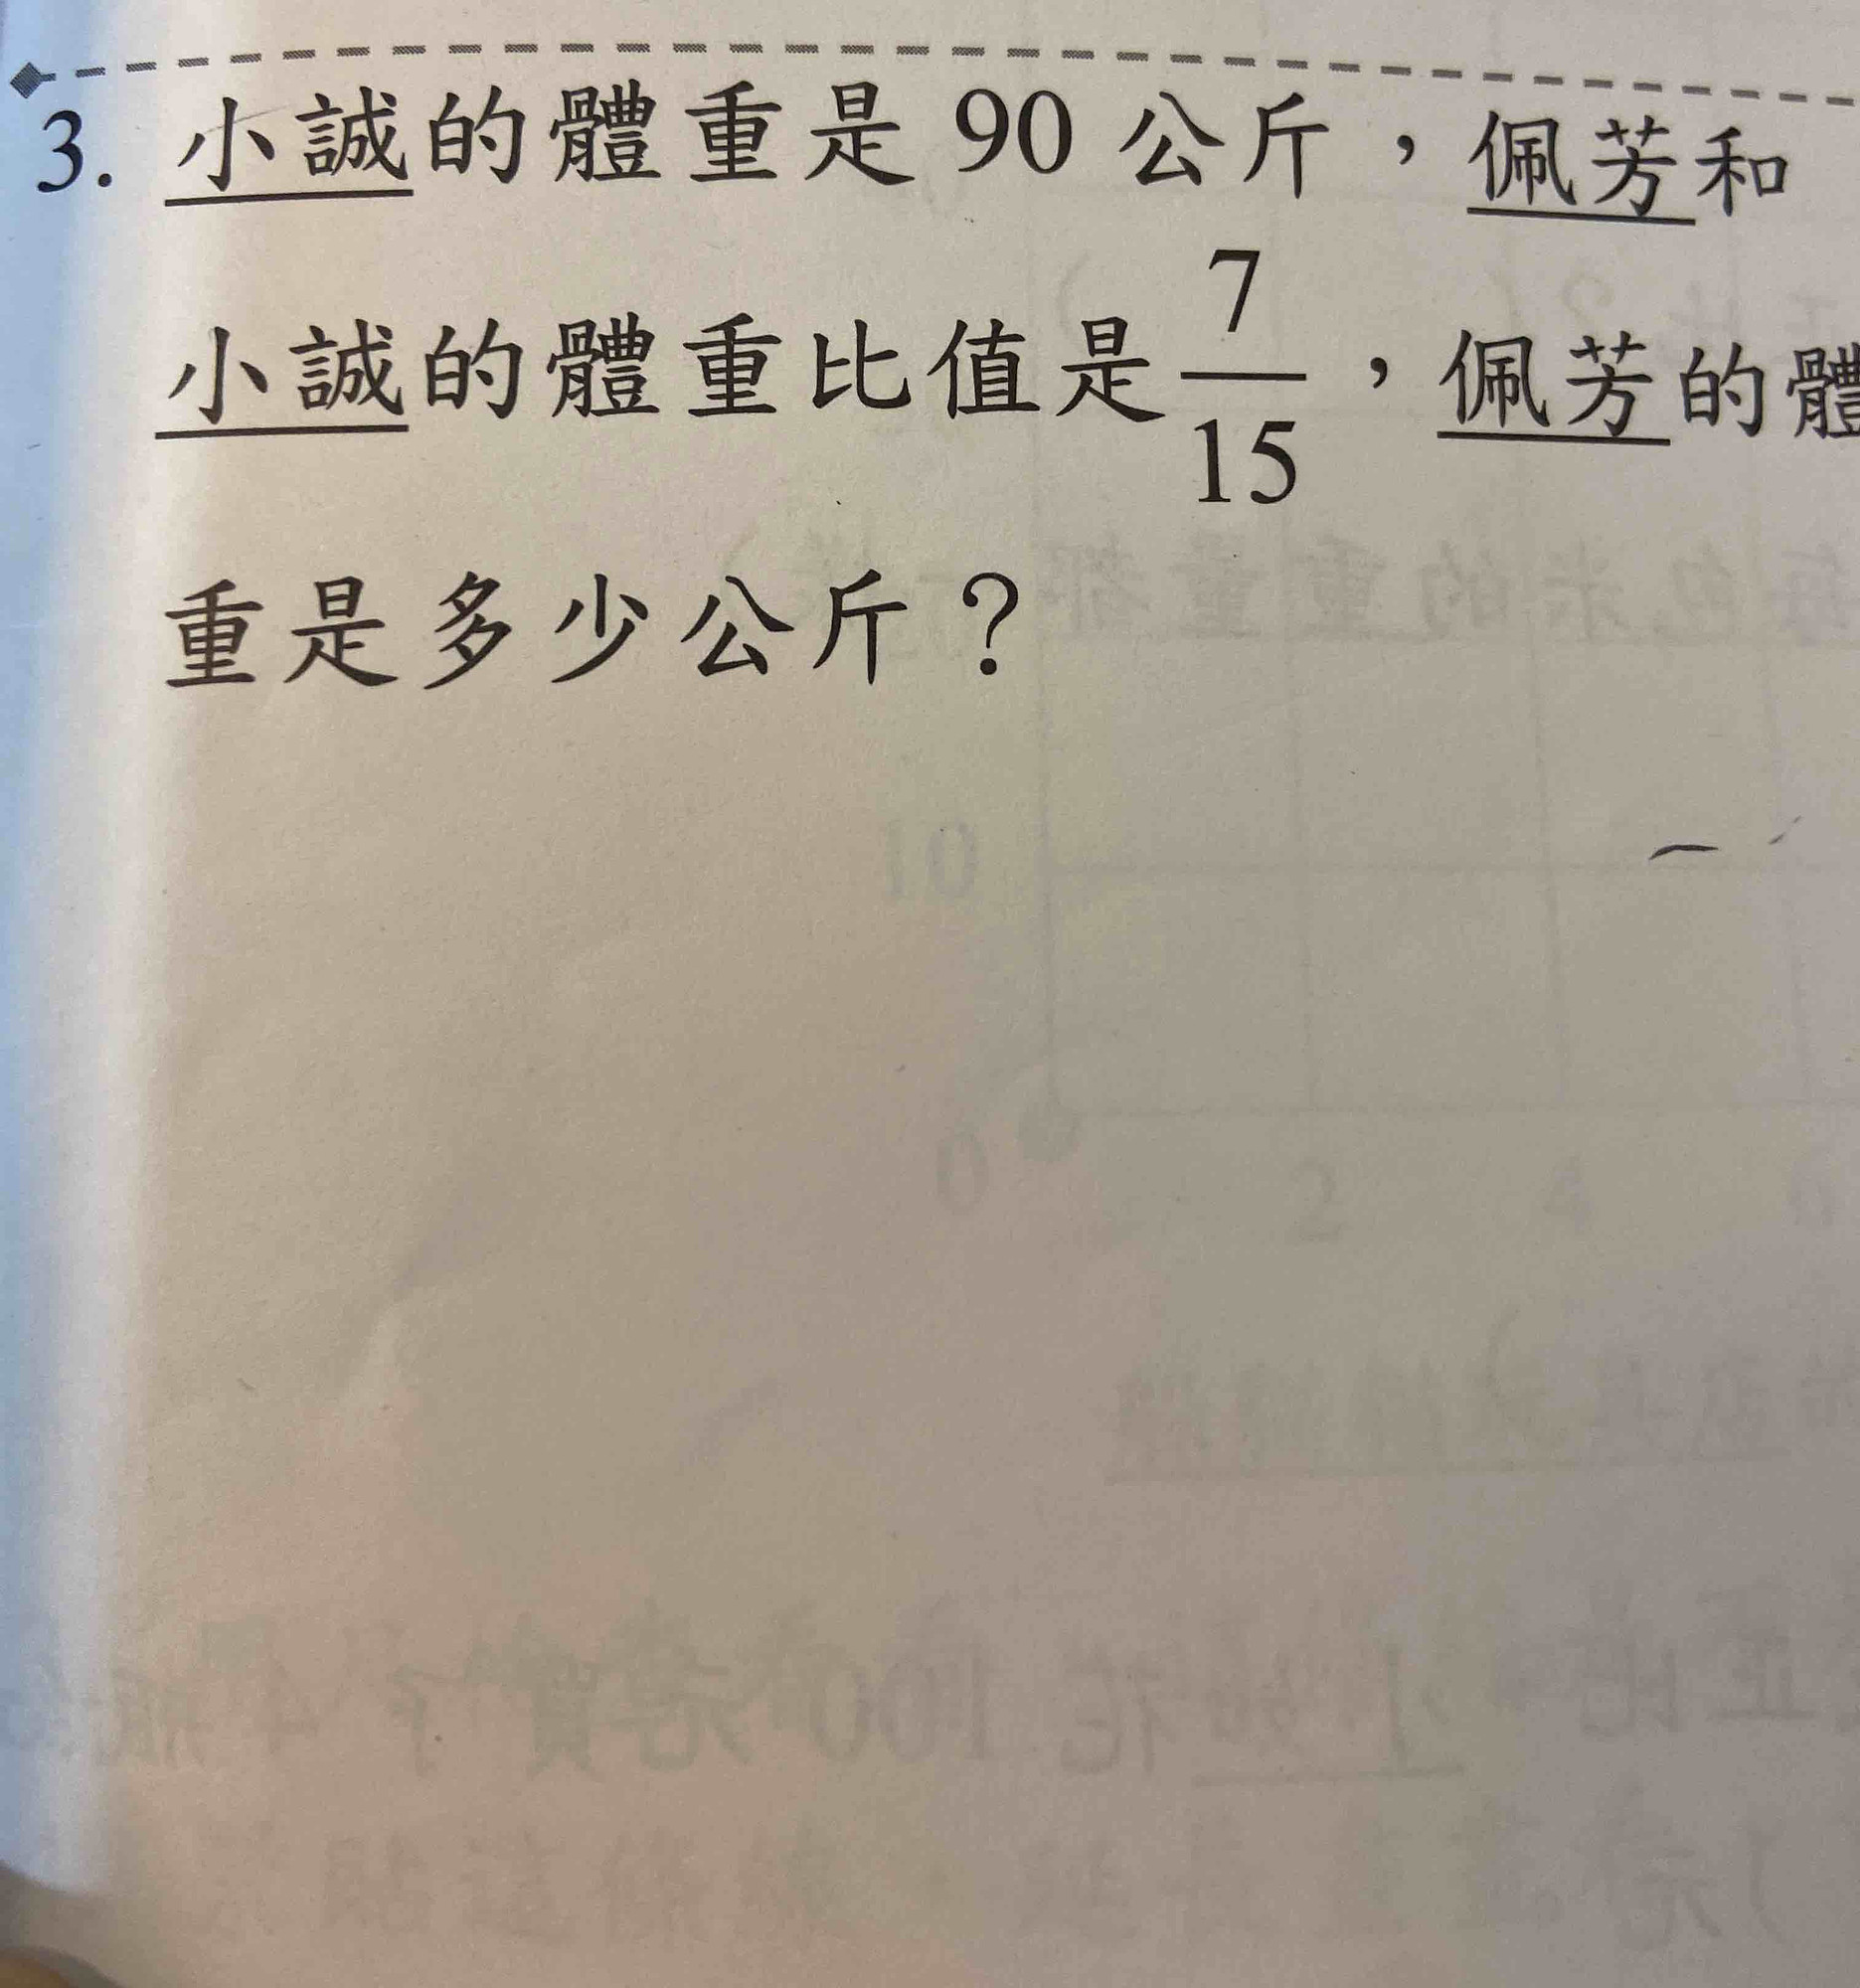 3. 小誠的體重是 90 公斤，佩芳和
小誠的體重比值是 7/15，佩芳的體
重是多少公斤？